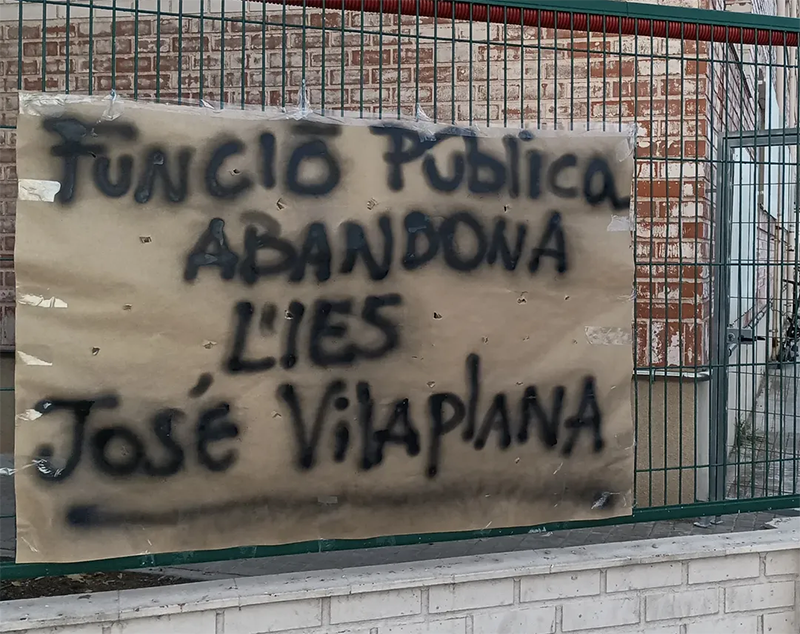 FUNCIÓ PÚBlica
ABANDONA
L'IES
José VilAplANA